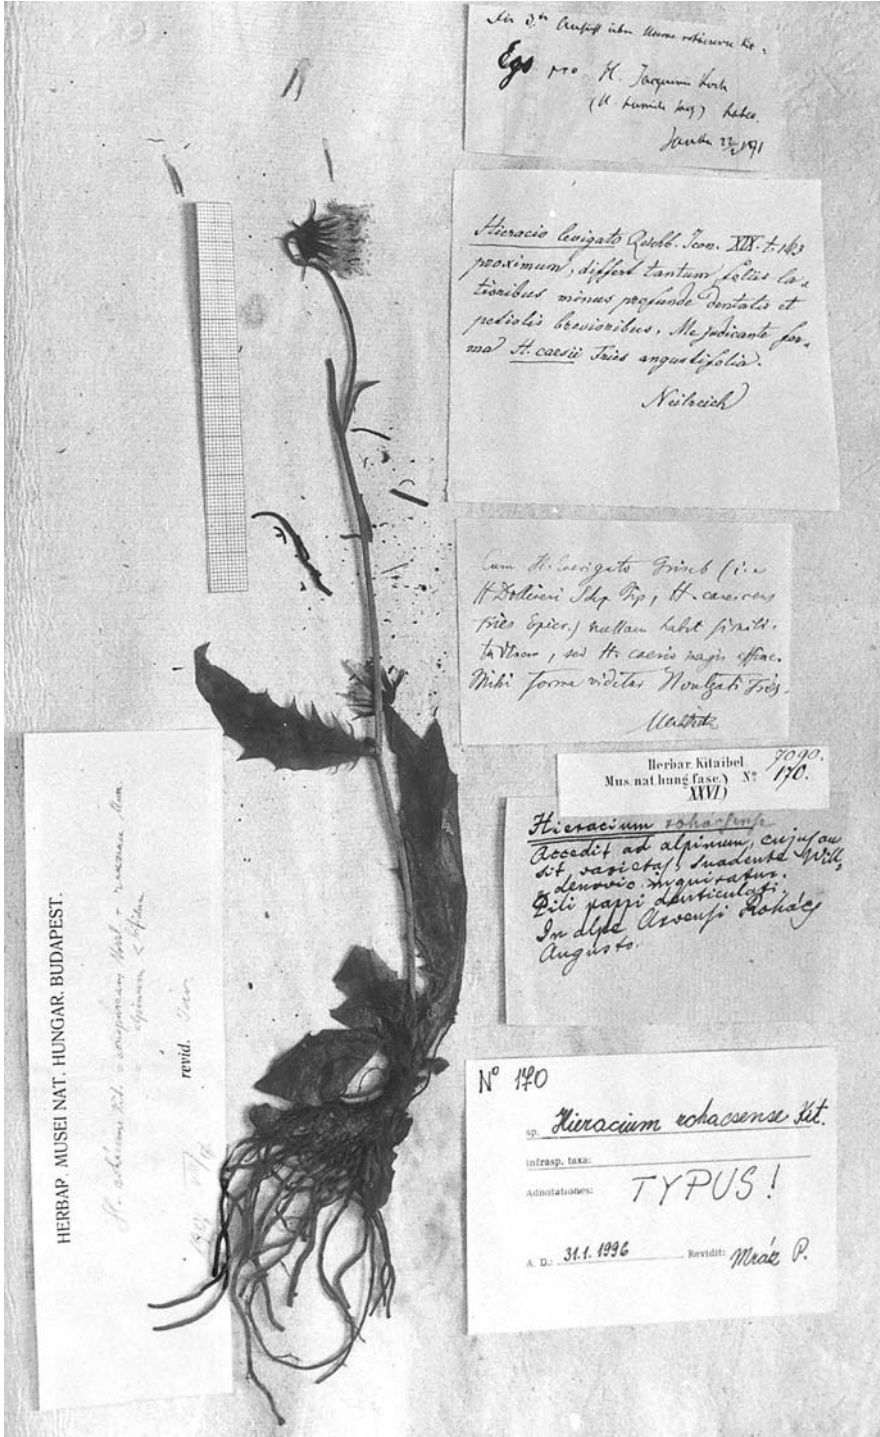 Ego pro H. Jacquini Koch
(H. humile Jacq) habeo.
Janka
Hieracio levigato Reichb. Icon. XIX. t. 163
proximum, differt tantum foliis la-
tioribus minus profunde dentatis et
petiolis brevioribus. Me judicante for-
ma H. caesii Fries angustifolia.
Neilreich
Cum H. laevigato Griseb (i. e
H Dollineri Schp Bip, H. canescens
Fries Epicr.) nullam habet simili-
tudinem, sed H. caesio magis affine.
Mihi forma videtur H vulgati Fries.
Herbar. Kitaibel 7090.
Mus. nat. hung. fasc.) Nº 170.
XXVI)
Hieracium rohácsense
Accedit ad alpinum, cujus an
sit varietas, suadente Will-
denovio inquiratur.
Pili pappi denticulati.
In alpe Arvensi Rohács
Augusto.
Nº 170
sp. Hieracium rohacsense Kit.
infrasp. taxa:
Adnotationes: TYPUS!
A. D.: 31.1.1996 Revidit: Mráz P.
HERBAR. MUSEI NAT. HUNGAR. BUDAPEST.
alpinum < bifidum
revid.